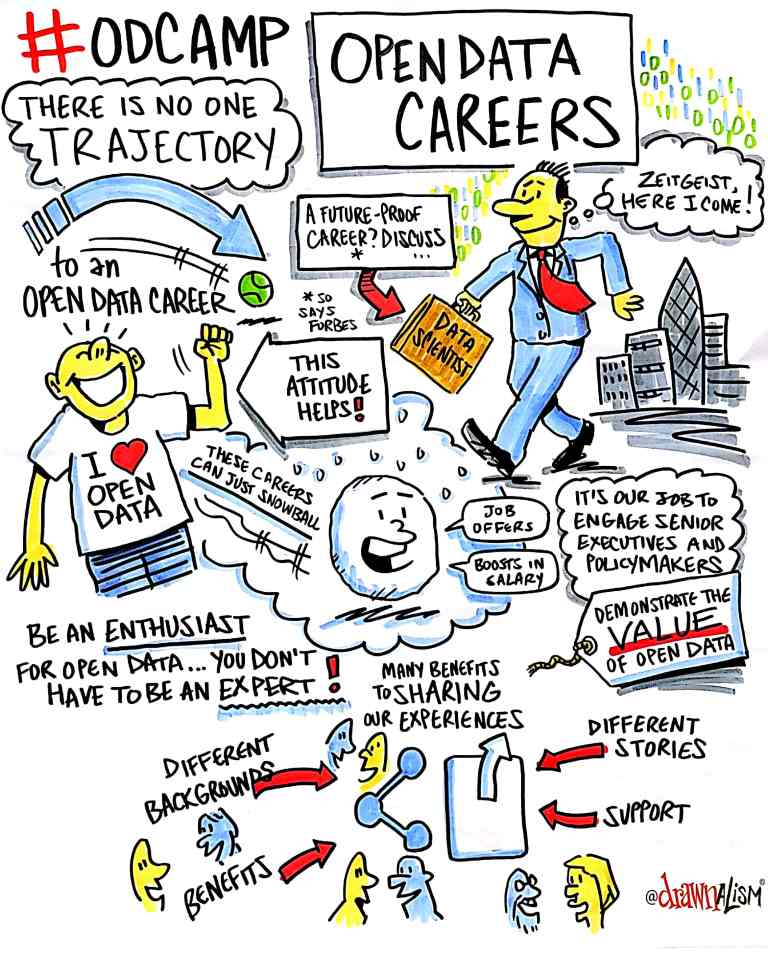 #ODCAMP
OPEN DATA
CAREERS
THERE IS NO ONE
TRAJECTORY
to an
OPEN DATA CAREER
A FUTURE-PROOF
CAREER? DISCUSS
* ...
* SO
SAYS
FORBES
ZEITGEIST,
HERE I COME!
DATA
SCIENTIST
THIS
ATTITUDE
HELPS!
I ❤
OPEN
DATA
THESE CAREERS
CAN JUST SNOWBALL
JOB
OFFERS
BOOSTS IN
SALARY
IT'S OUR JOB TO
ENGAGE SENIOR
EXECUTIVES AND
POLICYMAKERS
DEMONSTRATE THE
VALUE
OF OPEN DATA
BE AN ENTHUSIAST
FOR OPEN DATA... YOU DON'T
HAVE TO BE AN EXPERT!
MANY BENEFITS
TO SHARING
OUR EXPERIENCES
DIFFERENT
BACKGROUNDS
BENEFITS
DIFFERENT
STORIES
SUPPORT
@drawnalism